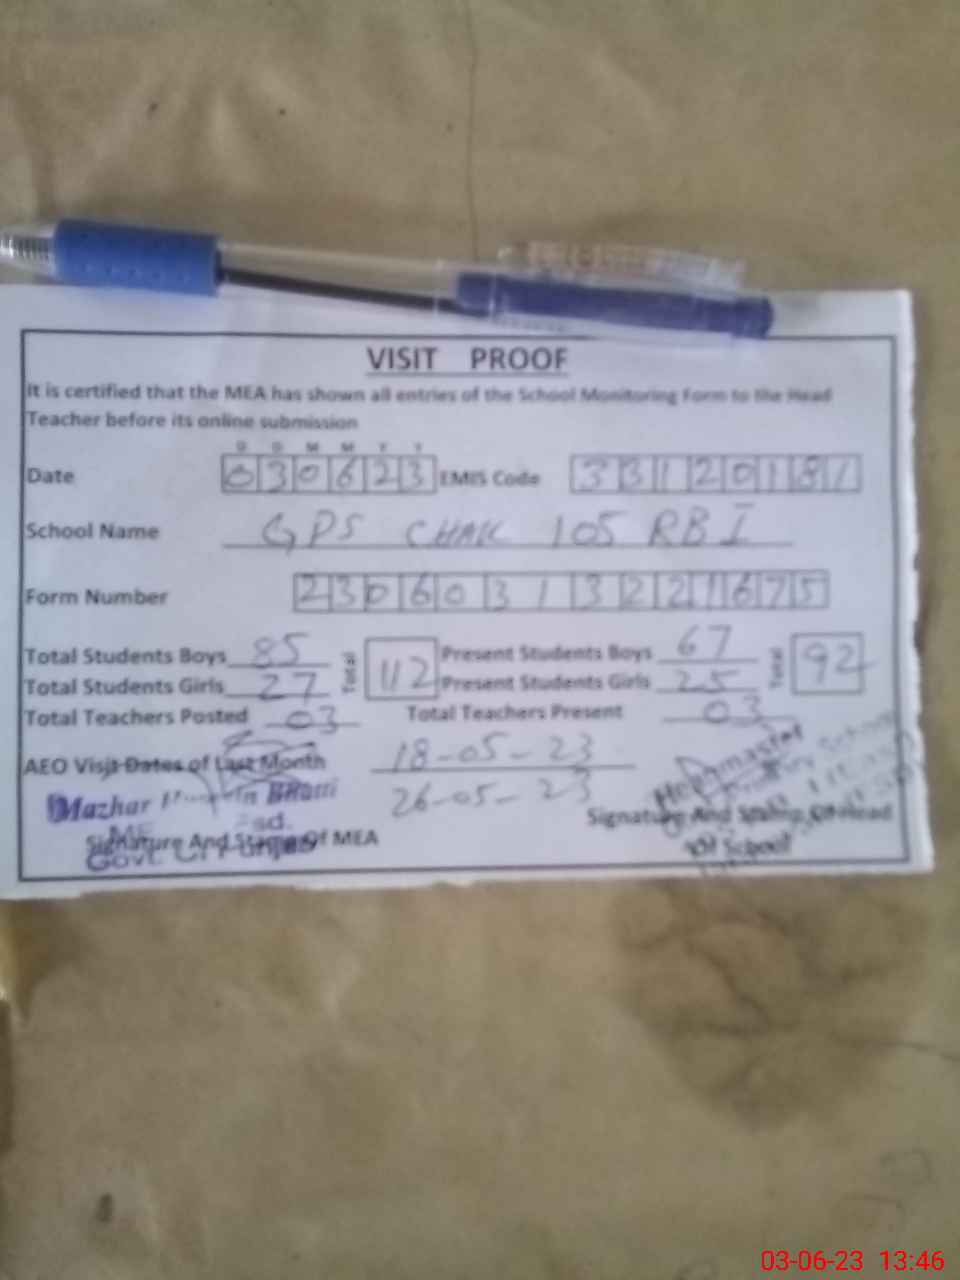 VISIT PROOF
It is certified that the MEA has shown all entries of the School Monitoring Form to the Head
Teacher before its online submission
D D M M Y Y
Date 030623 EMIS Code 33120181
School Name GPS CHAK 105 RB I
Form Number 230603132216 75
Total Students Boys 85 Total 112 Present Students Boys 67 Total 92
Total Students Girls 27 Present Students Girls 25
Total Teachers Posted 03 Total Teachers Present 03
AEO Visit Dates of Last Month 18-05-23
26-05-23
Mazhar Bhatti
Signature And Stamp Of MEA
Govt.
Headmaster
Signature And Stamp Of Head
Of School
03-06-23 13:46